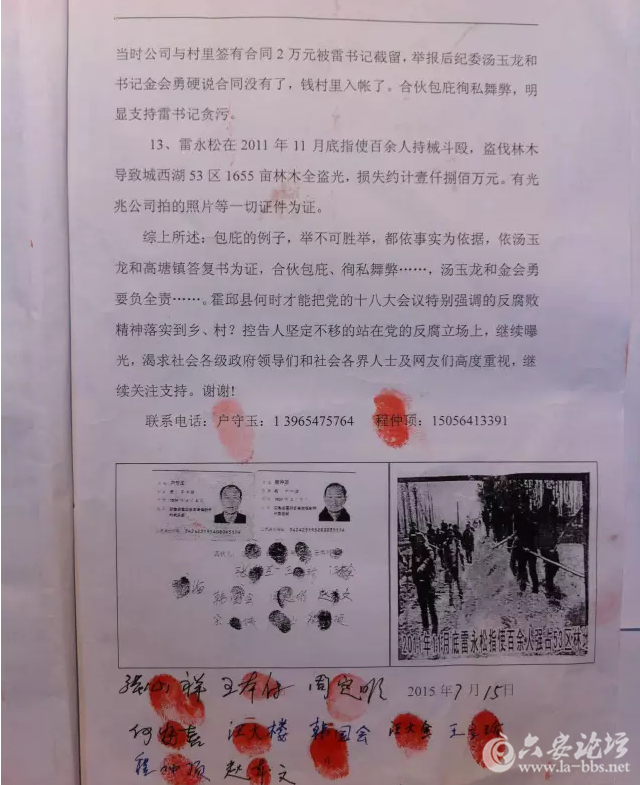 当时公司与村里签有合同2万元被雷书记截留，举报后纪委汤玉龙和
书记金会勇硬说合同没有了，钱村里入帐了。合伙包庇徇私舞弊，明
显支持雷书记贪污。
13、雷永松在2011年11月底指使百余人持械斗殴，盗伐林木
导致城西湖53区1655亩林木全盗光，损失约计壹仟捌佰万元。有光
兆公司拍的照片等一切证件为证。
综上所述：包庇的例子，举不可胜举，都依事实为依据，依汤玉
龙和高塘镇答复书为证，合伙包庇、徇私舞弊……，汤玉龙和金会勇
要负全责……。霍邱县何时才能把党的十八大会议特别强调的反腐败
精神落实到乡、村？控告人坚定不移的站在党的反腐立场上，继续曝
光，渴求社会各级政府领导们和社会各界人士及网友们高度重视，继
续关注支持。谢谢！
联系电话：户守玉：13965475764 程仲顶：15056413391
2011年11月底雷永松指使百余人强占53区林
2015年7月15日
韩国会
程仲顶 赵
六安论坛
www.la-bbs.net